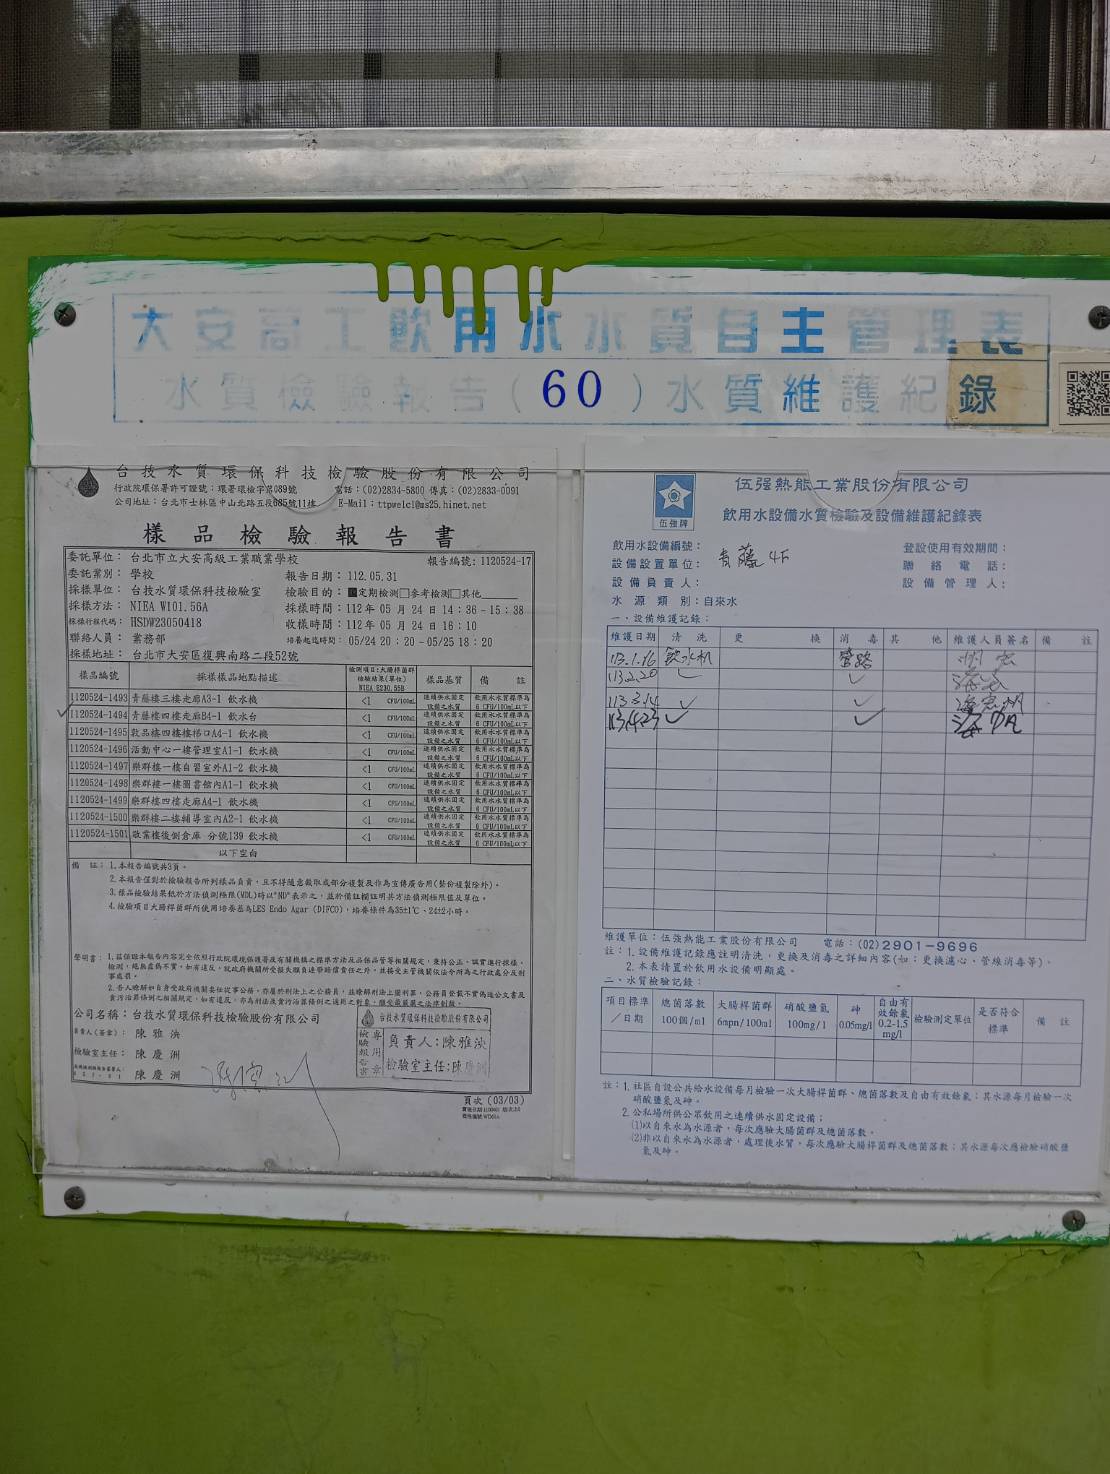 大安高工飲用水水質自主管理表
水質檢驗報告(60)水質維護紀錄
台技水質環保科技檢驗股份有限公司
行政院環保署許可證號：環署環檢字第089號 電話：(02)2834-5800 傳真：(02)2833-0091
公司地址：台北市士林區中山北路五段685號11樓 E-Mail：ttpwelcl@ms25.hinet.net
樣品檢驗報告書
委託單位：台北市立大安高級工業職業學校 報告編號：1120524-17
委託業別：學校 報告日期：112.05.31
採樣單位：台技水質環保科技檢驗室 檢驗目的：■定期檢測□參考檢測□其他
採樣方法：NIEA W101.56A 採樣時間：112年05月24日14：36-15：38
採樣行程代碼：HSDW23050418 收樣時間：112年05月24日16：10
聯絡人員：業務部 培養起迄時間：05/24 20：20-05/25 18：20
採樣地址：台北市大安區復興南路二段52號
樣品編號 採樣樣品地點描述 檢測項目：大腸桿菌群 檢驗結果(單位) NIEA E230.55B 樣品基質 備註
1120524-1493 青藤樓三樓走廊A3-1 飲水機 <1 CFU/100mL 連續供水固定設備之水質 飲用水水質標準為6 CFU/100mL以下
1120524-1494 青藤樓四樓走廊B4-1 飲水台 <1 CFU/100mL 連續供水固定設備之水質 飲用水水質標準為6 CFU/100mL以下
1120524-1495 敦品樓四樓樓梯口A4-1 飲水機 <1 CFU/100mL 連續供水固定設備之水質 飲用水水質標準為6 CFU/100mL以下
1120524-1496 活動中心一樓管理室A1-1 飲水機 <1 CFU/100mL 連續供水固定設備之水質 飲用水水質標準為6 CFU/100mL以下
1120524-1497 樂群樓一樓自習室外A1-2 飲水機 <1 CFU/100mL 連續供水固定設備之水質 飲用水水質標準為6 CFU/100mL以下
1120524-1498 樂群樓一樓圖書館內A1-1 飲水機 <1 CFU/100mL 連續供水固定設備之水質 飲用水水質標準為6 CFU/100mL以下
1120524-1499 樂群樓四樓走廊A4-1 飲水機 <1 CFU/100mL 連續供水固定設備之水質 飲用水水質標準為6 CFU/100mL以下
1120524-1500 樂群樓二樓輔導室內A2-1 飲水機 <1 CFU/100mL 連續供水固定設備之水質 飲用水水質標準為6 CFU/100mL以下
1120524-1501 敬業樓後側倉庫 分號139 飲水機 <1 CFU/100mL 連續供水固定設備之水質 飲用水水質標準為6 CFU/100mL以下
以下空白
備註：1.本報告編號共3頁。
2.本報告僅對於檢驗報告所列樣品負責，且不得隨意截取或部分複製及作為宣傳廣告用(整份複製除外)。
3.樣品檢驗結果低於方法偵測極限(MDL)時以"ND"表示之，並於備註欄註明其方法偵測極限值及單位。
4.檢驗項目大腸桿菌群所使用培養基為LES Endo Agar (DIFCO)，培養條件為35±1℃、24±2小時。
聲明書：1.茲保證本報告內容完全依照行政院環境保護署及有關機構之標準方法及品保品管等相關規定，秉持公正、誠實進行採樣、
檢測，絕無虛偽不實，如有違反，就政府機關所受損失願負連帶賠償責任之外，並接受主管機關依法令所為之行政處分及刑
事處罰。
2.吾人瞭解如自身受政府機關委任從事公務，亦屬於刑法上之公務員，並瞭解刑法上圖利罪、公務員登載不實偽造公文書及
貪污治罪條例之相關規定，如有違反，亦為刑法及貪污治罪條例之適用之對象，願受最嚴厲之法律制裁。
公司名稱：台技水質環保科技檢驗股份有限公司
負責人(簽章)：陳雅泱
檢驗室主任：陳慶洲
陳慶洲
台技水質環保科技檢驗股份有限公司
檢驗報告書專用章
負責人：陳雅泱
檢驗室主任：陳慶洲
頁次(03/03)
伍強牌
伍強熱能工業股份有限公司
飲用水設備水質檢驗及設備維護紀錄表
飲用水設備編號： 登設使用有效期間：
設備設置單位：青藤4F 聯絡電話：
設備負責人： 設備管理人：
水源類別：自來水
一、設備維護記錄：
維護日期 清洗 更換 消毒 其他 維護人員簽名 備註
113.1.16 飲水机 管路
113.2.20 ✓ ✓
113.3.14 ✓ ✓
113.4.23 ✓ ✓
維護單位：伍強熱能工業股份有限公司 電話：(02)2901-9696
註：1.設備維護記錄應註明清洗、更換及消毒之詳細內容(如：更換濾心、管線消毒等)。
2.本表請置於飲用水設備明顯處。
二、水質檢驗記錄：
項目標準/日期 總菌落數100個/ml 大腸桿菌群6mpn/100ml 硝酸鹽氮100mg/l 砷0.05mg/l 自由有效餘氯0.2-1.5mg/l 檢驗測定單位 是否符合標準 備註
註：1.社區自設公共給水設備每月檢驗一次大腸桿菌群、總菌落數及自由有效餘氯；其水源每月檢驗一次
硝酸鹽氮及砷。
2.公私場所供公眾飲用之連續供水固定設備：
(1)以自來水為水源者，每次應驗大腸菌群及總菌落數。
(2)非以自來水為水源者，處理後水質，每次應驗大腸桿菌群及總菌落數；其水源每次應檢驗硝酸鹽
氮及砷。